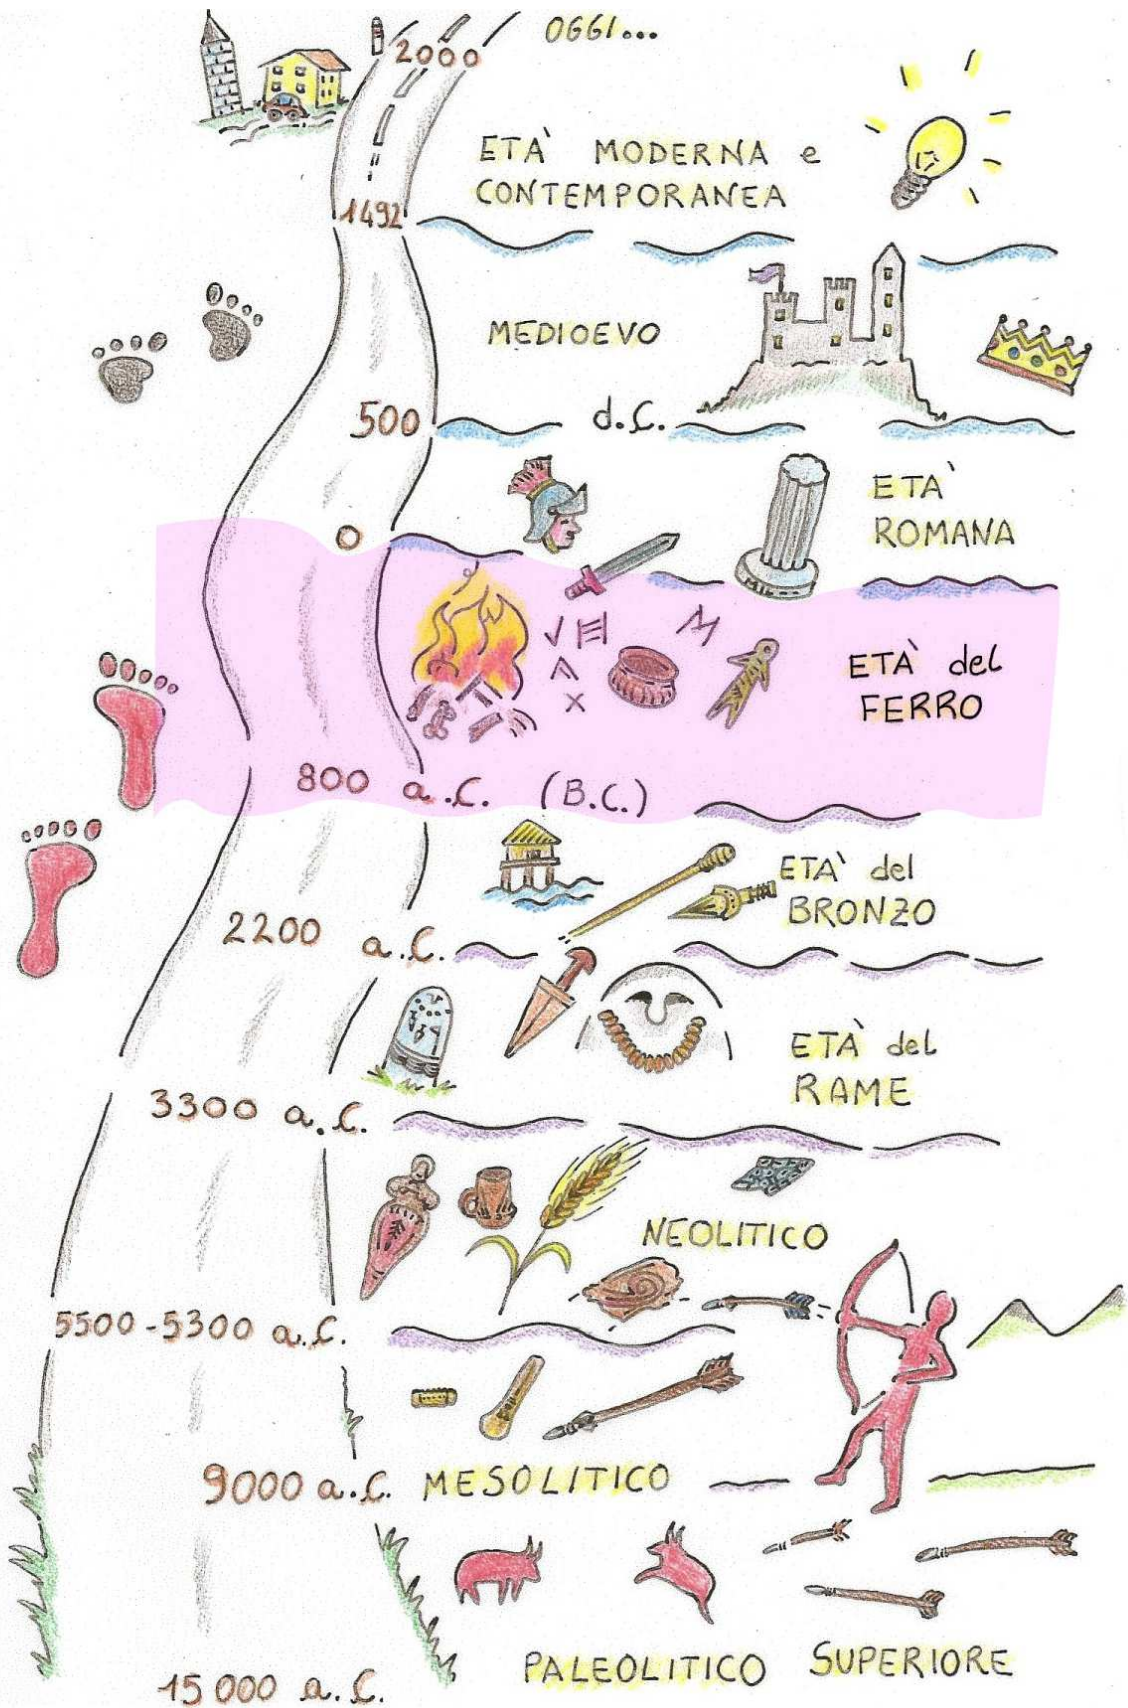 OGGI...
2000
ETÀ MODERNA e
CONTEMPORANEA
1492
MEDIOEVO
500
d.C.
ETÀ
ROMANA
0
ETÀ del
FERRO
800 a.C. (B.C.)
ETA' del
BRONZO
2200 a.C.
ETÀ del
RAME
3300 a.C.
NEOLITICO
5500-5300 a.C.
9000 a.C. MESOLITICO
PALEOLITICO SUPERIORE
15000 a.C.